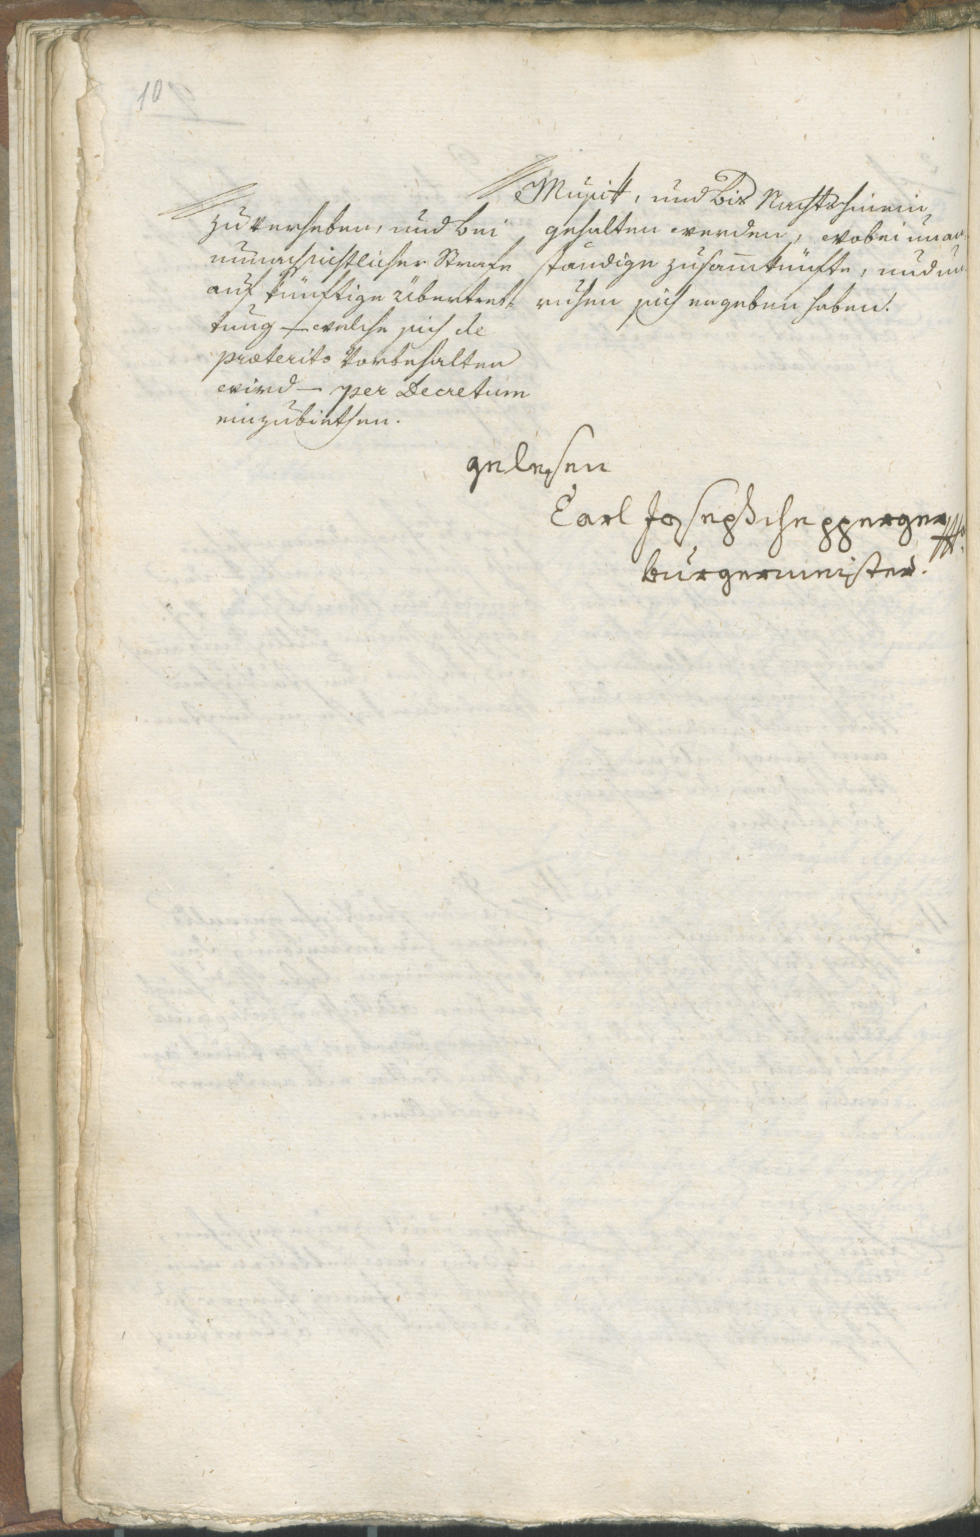 10
zu erheben, und bei
unnachsichtlicher Strafe
auf künftige Übertret-
tung – welche sich de
præterito vorbehalten
wird – per Decretum
einzubiethen.
Musik, und bis Nachts hinein
gehalten werden, wobei unan-
ständige zusammkünfte, und un-
ruhen sich ergeben haben.
gelesen
Carl Joseph
burgermeister.